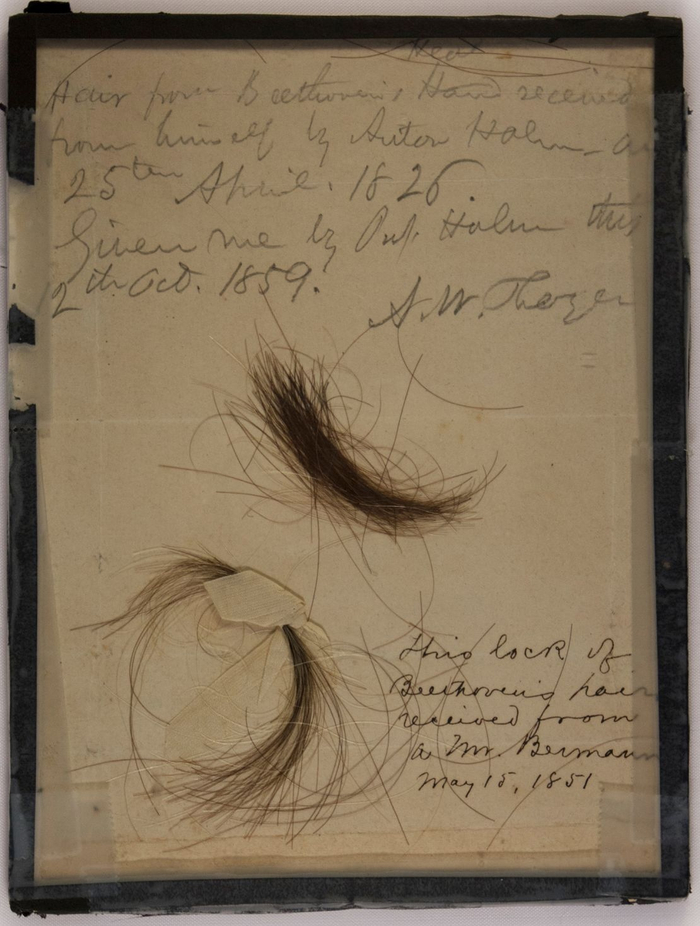 Head
Hair from Beethoven's Hand received
from himself by Anton Halm - on
25ten April. 1826
Given me by Prof. Halm this
12th Oct. 1859.
A. W. Thayer
This lock of
Beethoven's hair
received from
a Mr. Bermann
May 15, 1851